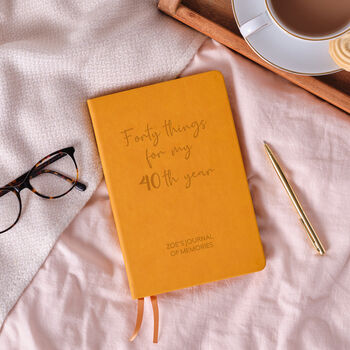 Forty things
for my
40th year
ZOE'S JOURNAL
OF MEMORIES